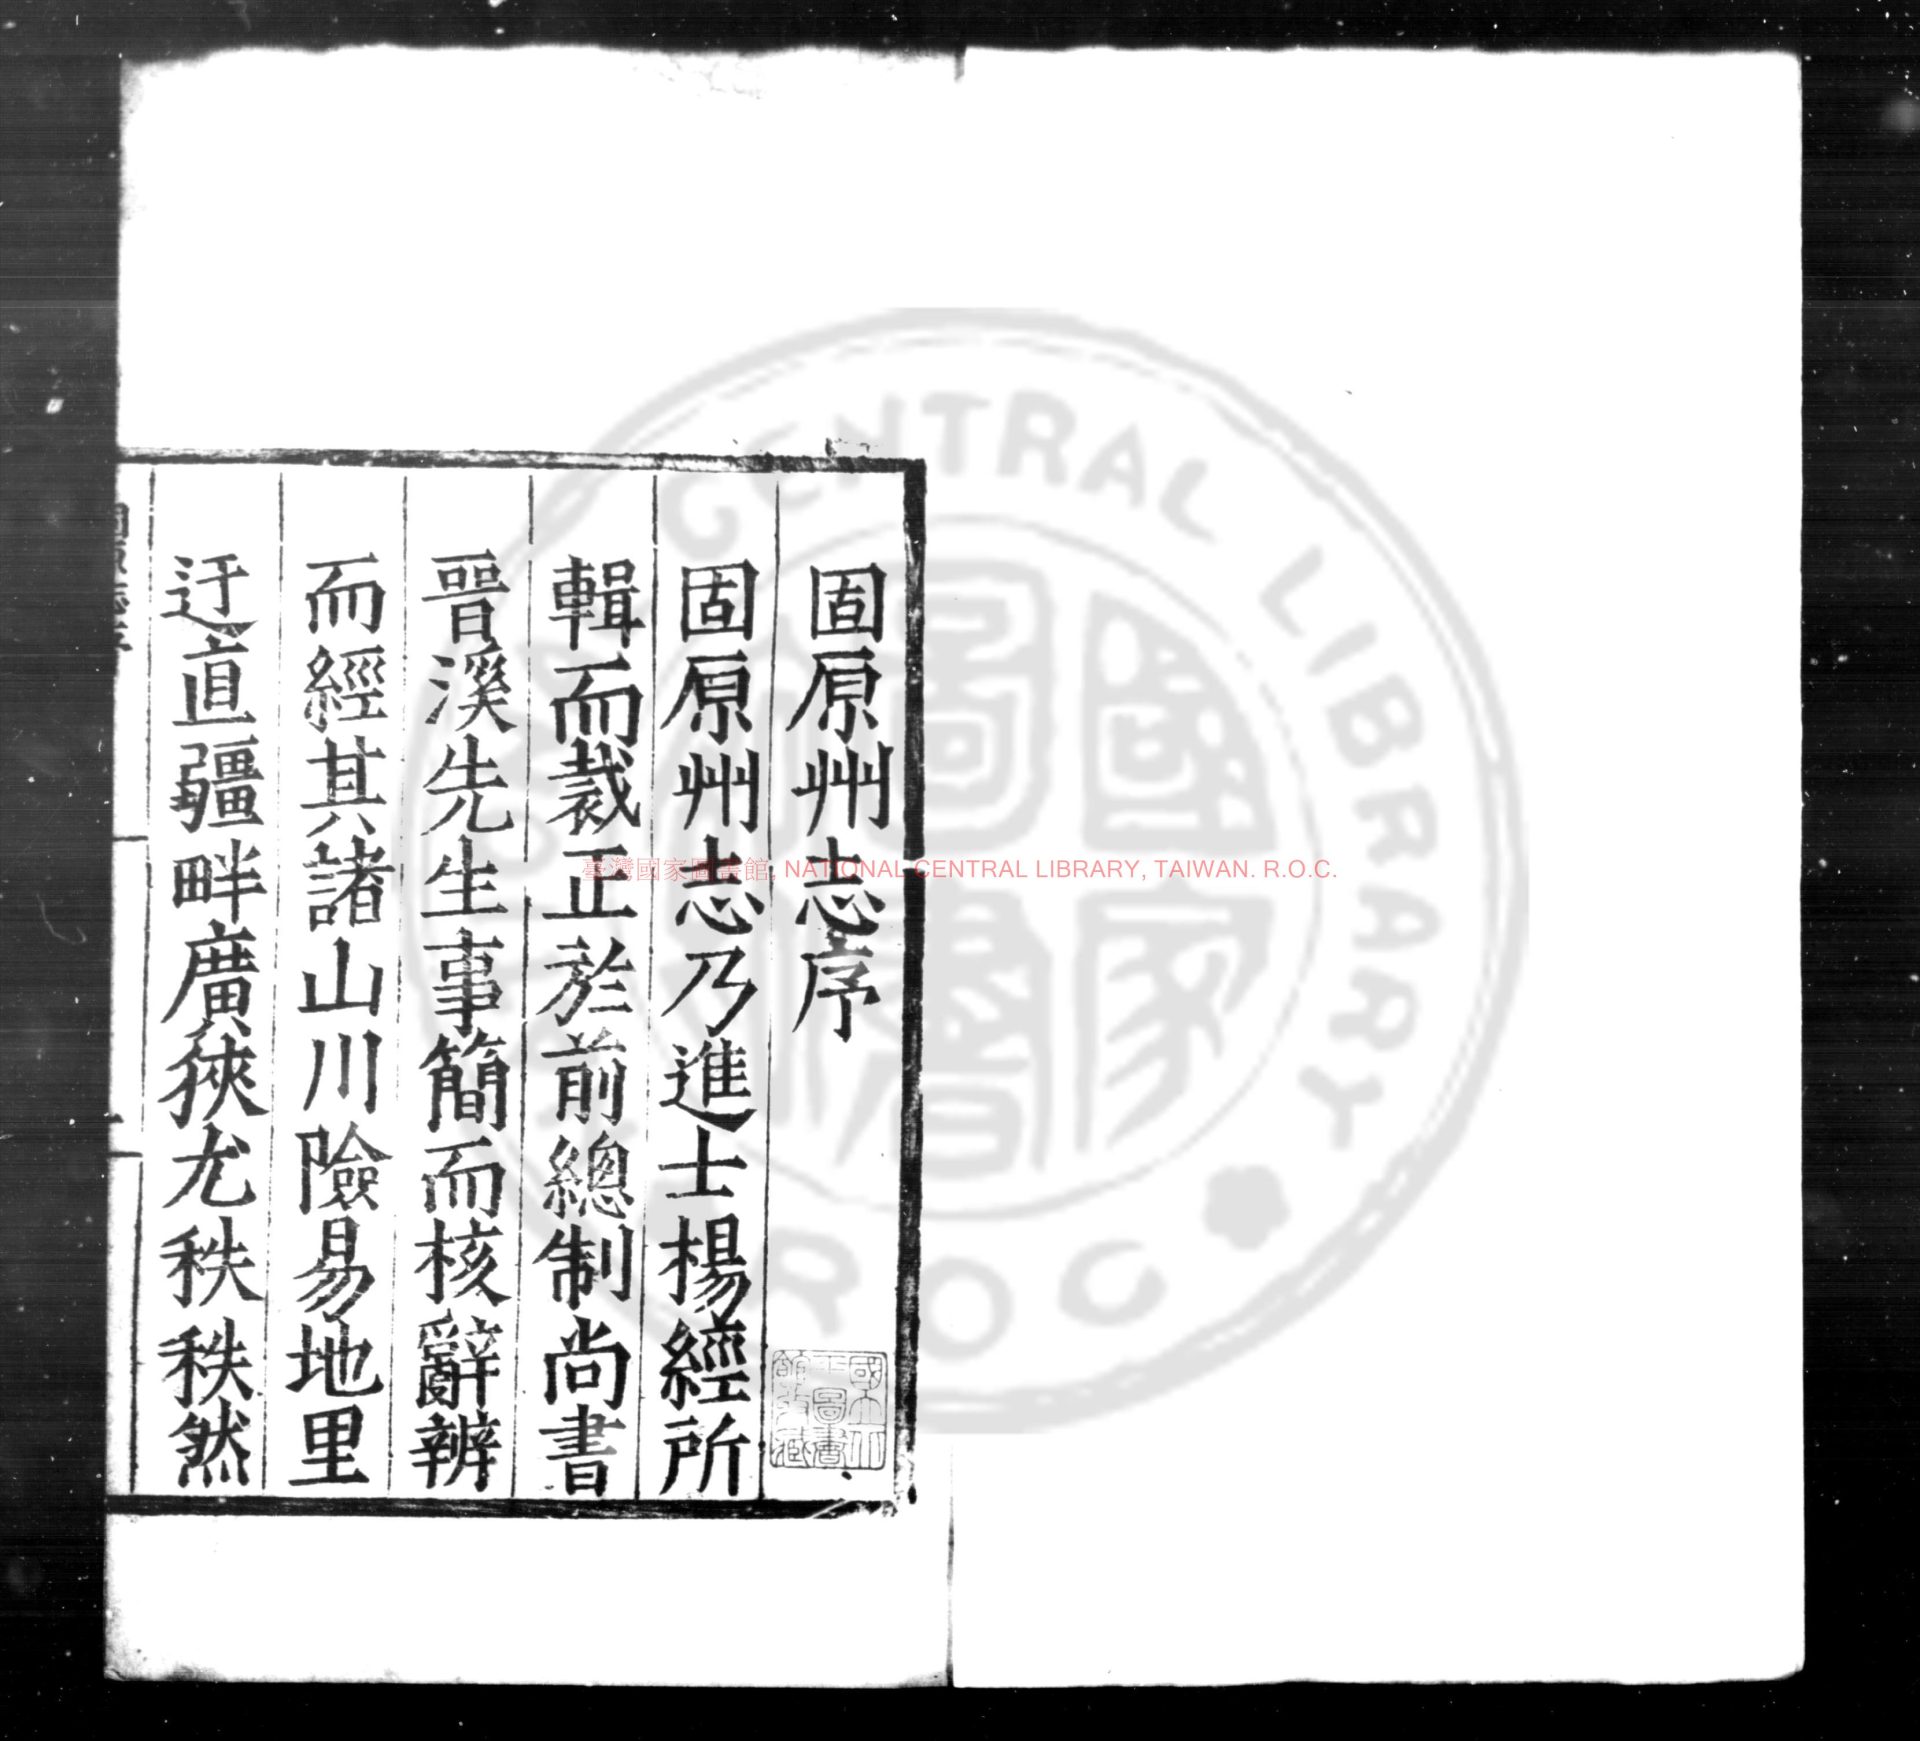 固原州志序
固原州志乃進士楊經所
輯而裁正於前總制尚書
晉溪先生事簡而核辭辨
而經其諸山川險易地里
迂直疆畔廣狹尤秩秩然
國立北
平圖書
館收藏
臺灣國家圖書館, NATIONAL CENTRAL LIBRARY, TAIWAN. R.O.C.
NATIONAL CENTRAL LIBRARY R.O.C
國家圖書